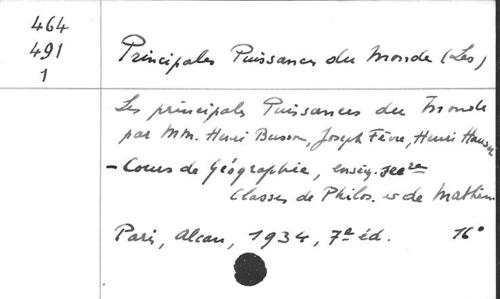 464
491
1
Principales Puissances du Monde (Les)
Les principales Puissances du Monde
par MM. Henri Busson, Joseph Fèvre, Henri Hauser
– Cours de Géographie, enseig. secre
Classes de Philos. et de Mathém.
Paris, Alcan, 1934, 7e éd. 16°